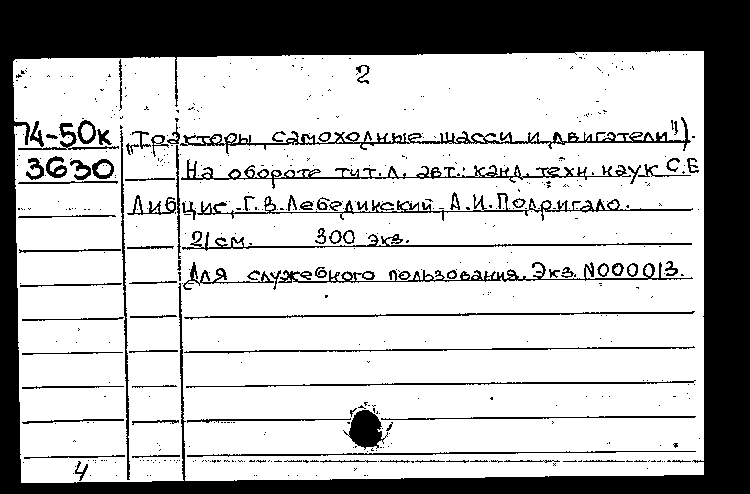 2
74-50к „Тракторы, самоходные шасси и двигатели").
3630 На обороте тит.л. авт.: канд. техн. наук С.Е
Либцис, Г.В.Лебединский, А.И.Подригало.
21см. 300 экз.
Для служебного пользования. Экз. N000013.
4